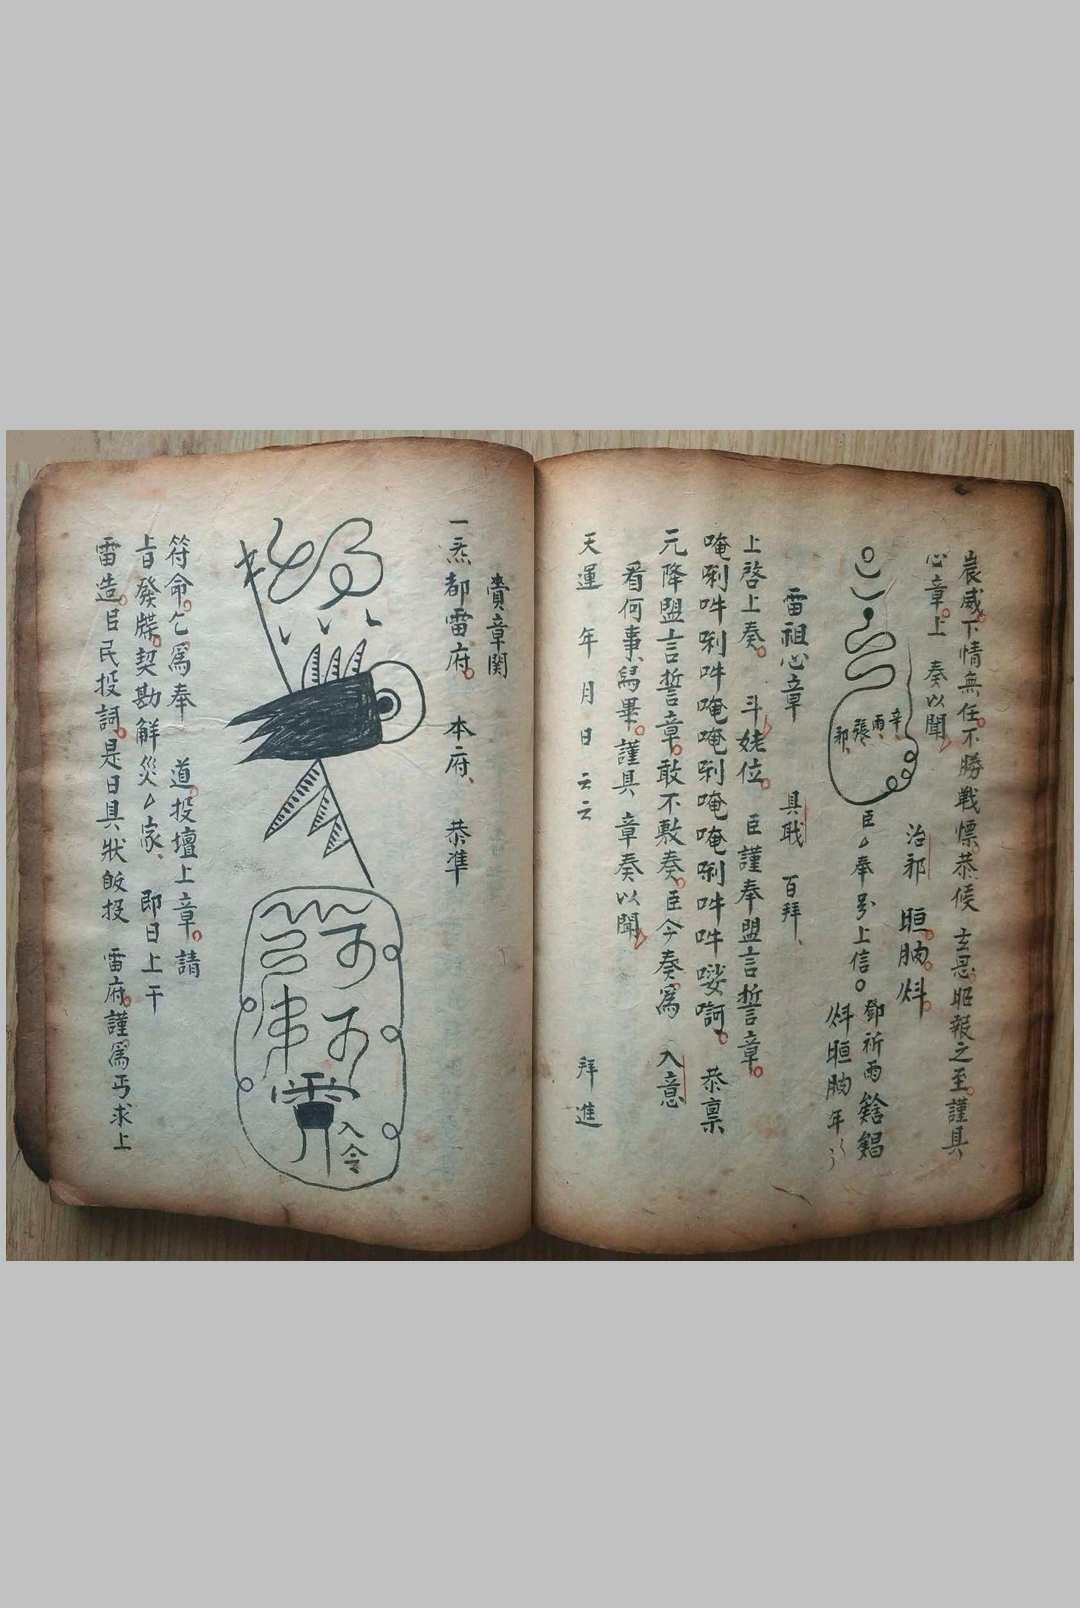 宸威下情無任不勝戰慓恭候 玄恩昭報之至謹具
心章上 奏以聞
治邪 晅朒炓
辛
雨
張
邪
臣厶奉 上信
鄧祈雨
炓晅朒年
雷祖心章 具職 百拜
上啓上奏 斗姥位 臣謹奉盟言誓章
唵唎吽唎吽唵唵唎唵唵唎吽吽 恭禀
元降盟言誓章敢不敷奏臣今奏爲 入意
看何事寫畢謹具 章奏以聞
天運 年 月 日 云云 拜進
賫章関
一炁都雷府 本府 恭準
入令
符命乞爲奉 道投壇上章請
上旨發牒契勘解災厶家 即日上干
雷造臣民投詞是日具狀皈投 雷府謹爲丐求上